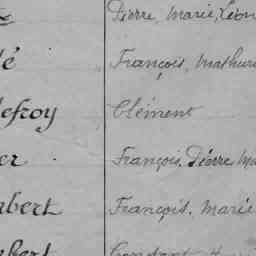 Pierre, Marie, Léon
é François, Mathuri
efroy Clément
er François, Pierre Ma
bert François, Marie
bert Constant